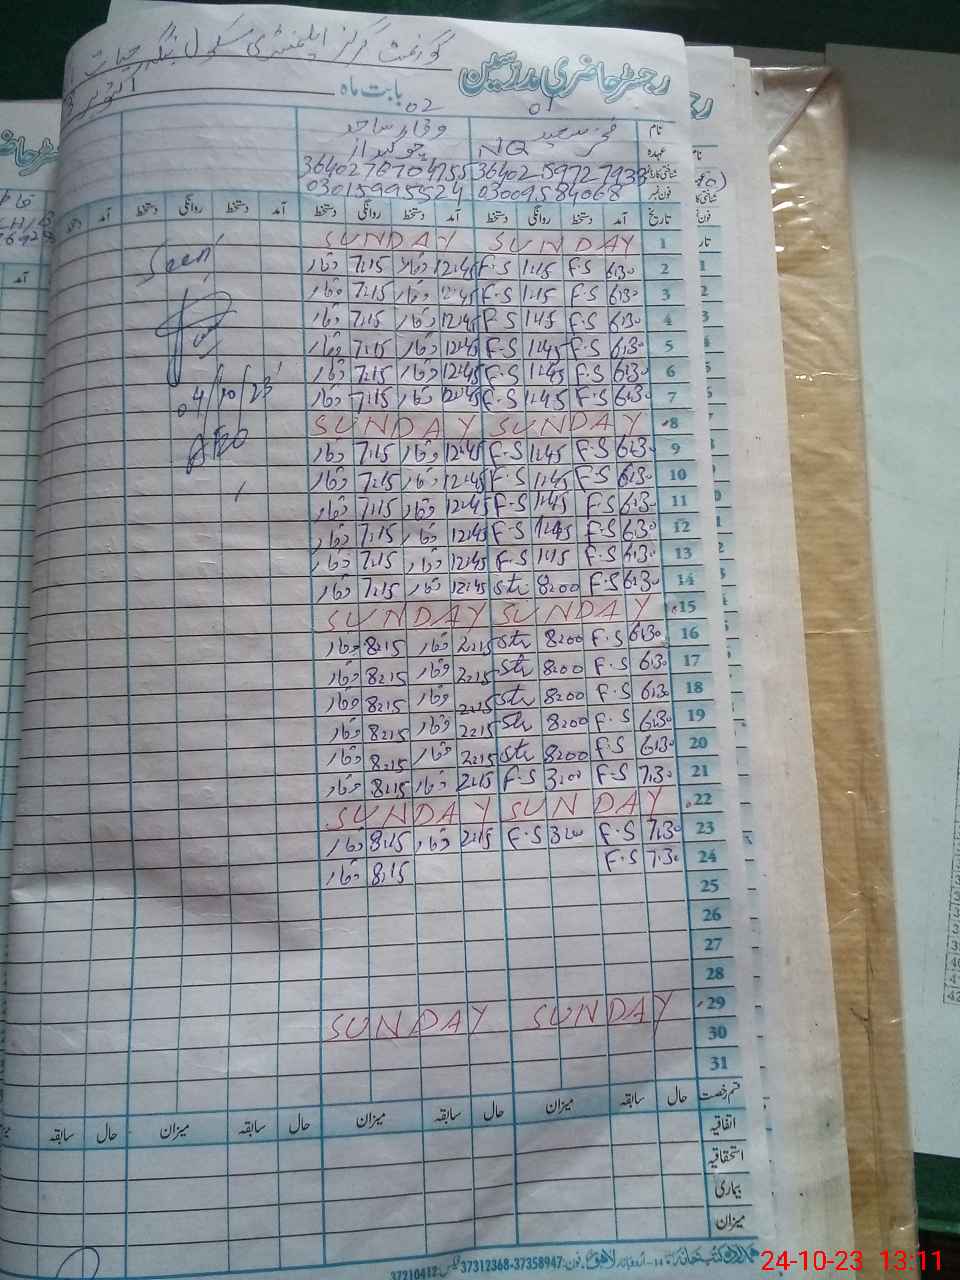 گورنمنٹ گرلز ایلیمنٹری سکول
رجسٹر حاضری مدرسین
بابت ماہ اکتوبر
01 02
نام فخر سعید وقار ساجد
عہدہ NQ چوکیدار
3640215972793 3640276704755
فون نمبر 03009584068 03015995524
تاریخ آمد دستخط روانگی دستخط آمد دستخط روانگی دستخط آمد دستخط روانگی دستخط
1 SUNDAY SUNDAY
2 6:30 F.S 1:45 F.S 12:45 وقار 7:15 وقار
3 6:30 F.S 1:45 F.S 12:45 وقار 7:15 وقار
4 6:30 F.S 1:45 F.S 12:45 وقار 7:15 وقار
5 6:30 F.S 1:45 F.S 12:45 وقار 7:15 وقار
6 6:30 F.S 1:45 F.S 12:45 وقار 7:15 وقار
7 6:30 F.S 1:45 F.S 12:45 وقار 7:15 وقار
8 SUNDAY SUNDAY
9 6:30 F.S 1:45 F.S 12:45 وقار 7:15 وقار
10 6:30 F.S 1:45 F.S 12:45 وقار 7:15 وقار
11 6:30 F.S 1:45 F.S 12:45 وقار 7:15 وقار
12 6:30 F.S 1:45 F.S 12:45 وقار 7:15 وقار
13 6:30 F.S 1:45 F.S 12:45 وقار 7:15 وقار
14 6:30 F.S 8:00 12:45 وقار 7:15 وقار
15 SUNDAY SUNDAY
16 6:30 F.S 8:00 2:15 وقار 8:15 وقار
17 6:30 F.S 8:00 2:15 وقار 8:15 وقار
18 6:30 F.S 8:00 2:15 وقار 8:15 وقار
19 6:30 F.S 8:00 2:15 وقار 8:15 وقار
20 6:30 F.S 8:00 2:15 وقار 8:15 وقار
21 7:30 F.S 3:00 F.S 2:15 وقار 8:15 وقار
22 SUNDAY SUNDAY
23 7:30 F.S 3:00 F.S 2:15 وقار 8:15 وقار
24 7:30 F.S 8:15 وقار
25
26
27
28
29 SUNDAY SUNDAY
30
31
قسم رخصت حال سابقہ میزان حال سابقہ میزان حال سابقہ میزان حال سابقہ
اتفاقیہ
استحقاقیہ
بیماری
میزان
Seen
04/10/23
AEO
37312368-37358947
37210412
24-10-23 13:11